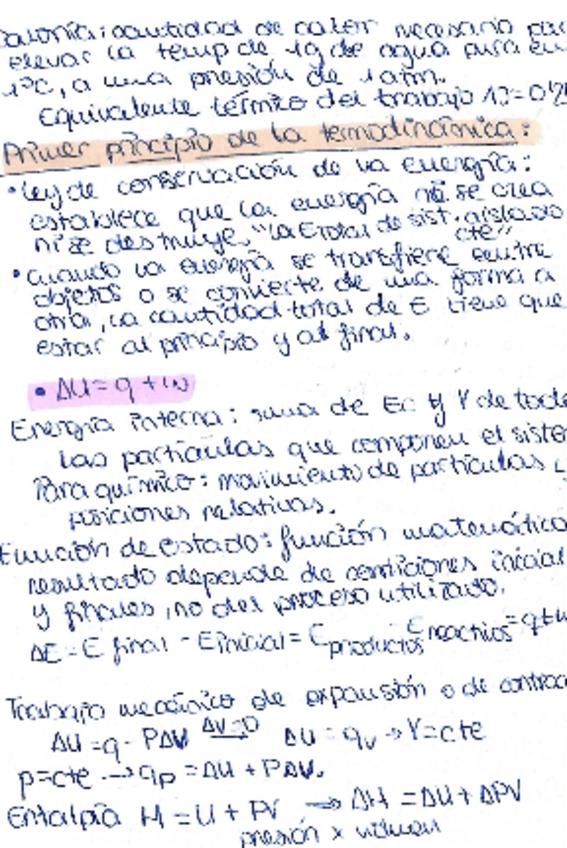 Caloría: cantidad de calor necesario par
elevar la temp de 1g de agua pura en
1ºC, a una presión de 1 atm.
Equivalente térmico del trabajo 1J=0'2
Primer principio de la termodinámica:
• Ley de conservación de la energía:
establece que la energía no se crea
ni se destruye, "La E total de sist. aislado
cte"
• cuando la energía se transfiere entre
objetos o se convierte de una forma a
otra, la cantidad total de E tiene que
estar al principio y al final.
• ΔU = q + w
Energía interna: suma de Ec y V de toda
las partículas que componen el siste
Para químico: movimiento de partículas
posiciones relativas.
Función de estado: función matemática
resultado depende de condiciones inicial
y finales, no del proceso utilizado.
ΔE = E final - E inicial = E productos - E reactivos = q + w
Trabajo mecánico de expansión o de contrac
ΔU = q - PΔV ΔV=0→ ΔU = qv → V=cte
p=cte → qp = ΔU + PΔV.
Entalpía H = U + PV → ΔH = ΔU + ΔPV
presión x volumen